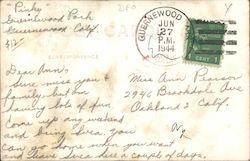 "Pinky"
Guernewood Park
Guernewood Calif.
DPO
GUERNEWOOD
JUN
27
P.M.
1944
CENT
Dear Ann,
Sure miss you &
family but am
having lots of fun.
Come up any weekend
and bring Bea. You
can go home when you want
and leave Bea here a couple of days.
Miss Ann Pierson
2946 Brookdale Ave
Oakland 2 Calif.